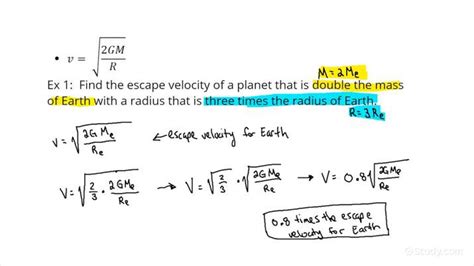 • v = √(2GM/R)
M = 2Me
Ex 1: Find the escape velocity of a planet that is double the mass
of Earth with a radius that is three times the radius of Earth.
R = 3Re
V = √(2GMe/Re) ← escape velocity for Earth
V = √(2/3 · 2GMe/Re) → V = √(2/3) · √(2GMe/Re) → V = 0.8√(2GMe/Re)
0.8 times the escape
velocity for Earth
©Study.com